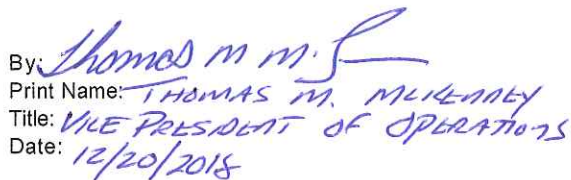 By: Thomas M M
Print Name: THOMAS M. MCKENNEY
Title: VICE PRESIDENT OF OPERATIONS
Date: 12/20/2018